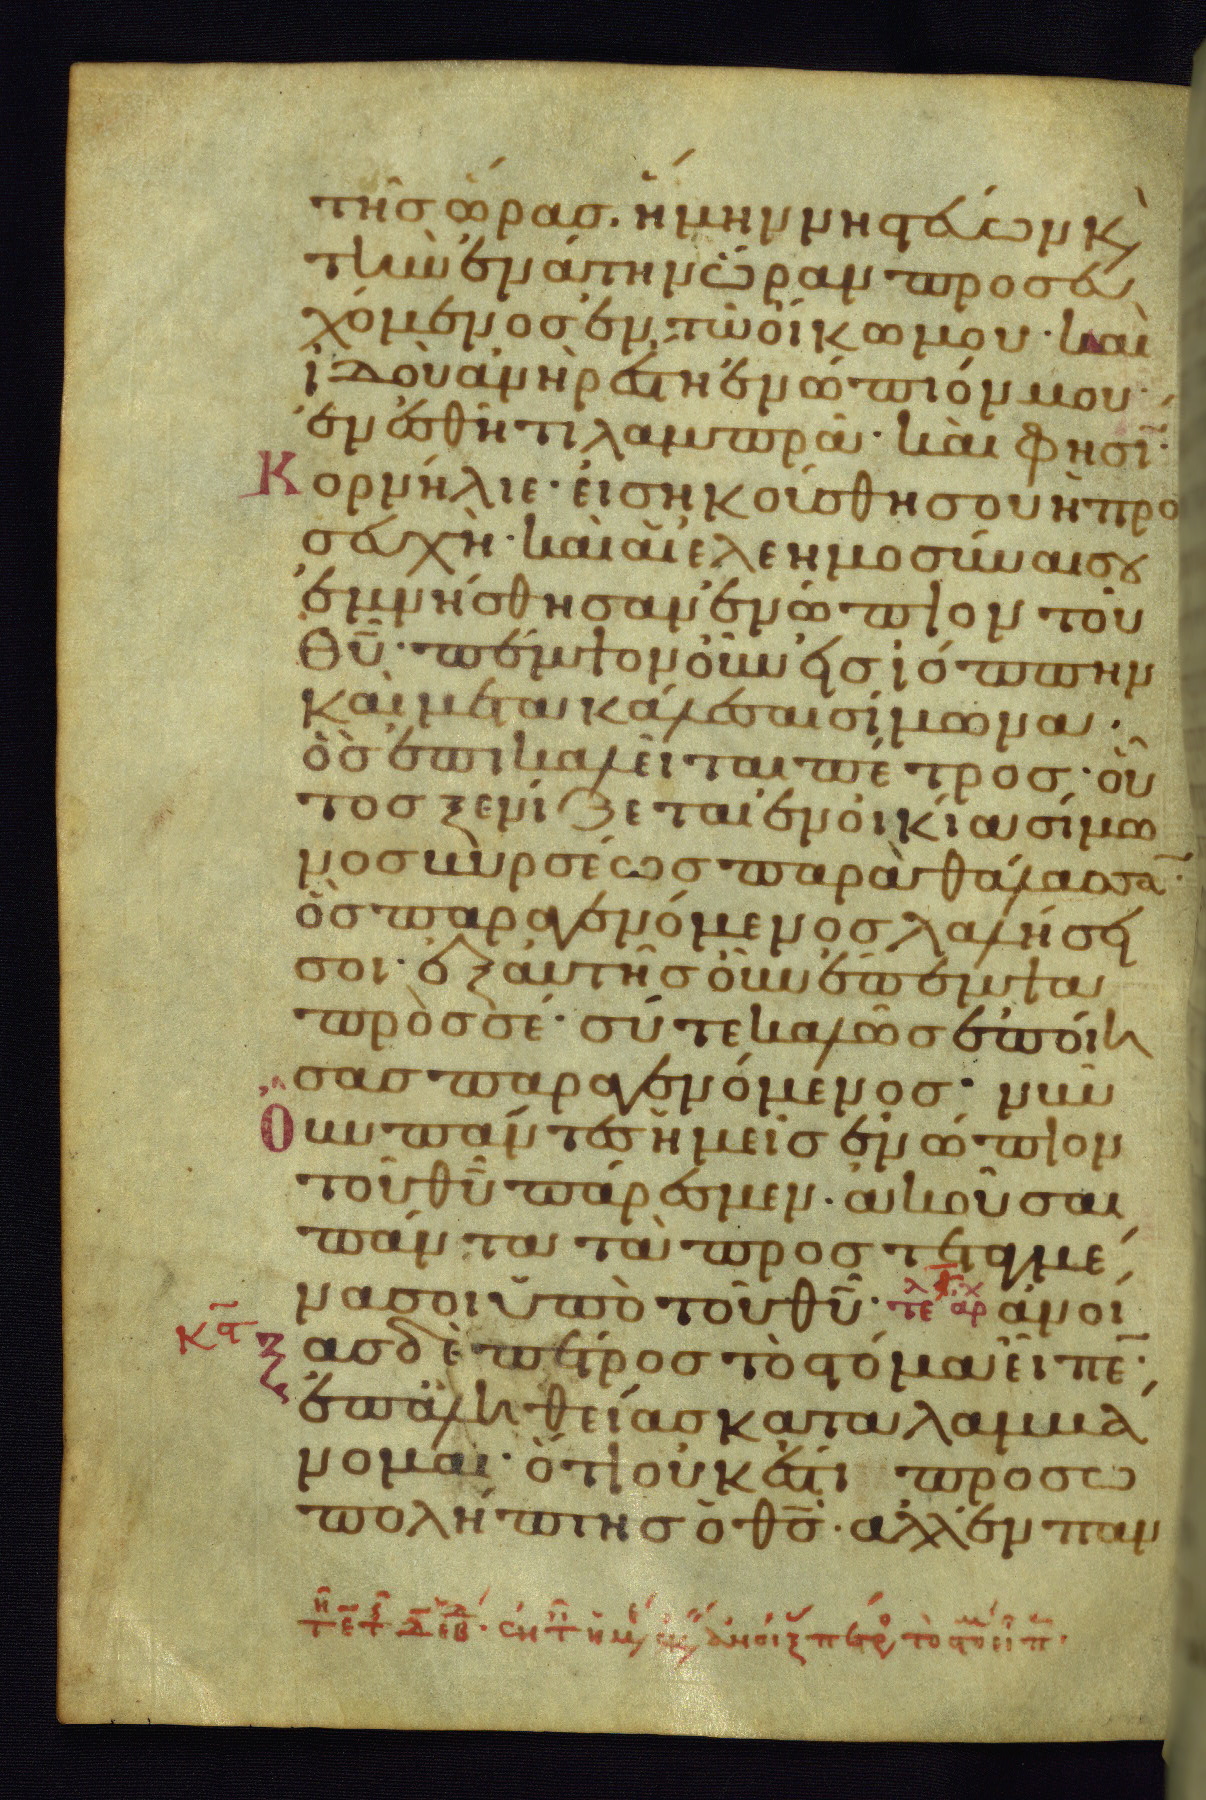 τῆς ὥρας. ἤμην νηστεύων κ(αὶ)
τὴν ἐνάτην ὥραν προσευ
χόμενος ἐν τῶ οἴκω μου· καὶ
ἰδοὺ ἀνὴρ ἔστη ἐνώπιόν μου·
ἐν ἐσθῆτι λαμπρᾶ· καὶ φησῒ·
Κορνήλιε· εἰσηκούσθη σου ἡ προ
σευχὴ· καὶ αἱ ἐλεημοσύναι σου
ἐμνήσθησαν ἐνώπιον τοῦ
θῡ· πέμψον οὖν εἰς ἰόππην
καὶ μετακάλεσαι σίμωνα.
ὃς ἐπικαλεῖται πέτρος· οὗ
τος ξενίζεται ἐν οἰκία σίμω
νος βυρσέως παρὰ θάλασσα̅·
ὃς παραγενόμενος λαλήσει
σοι· ἐξαυτῆς οὖν ἔπεμψα
πρὸς σέ· σύ τε καλῶς ἐποίη
σας παραγενόμενος· νῦν
Οὖν πάντες ἡμεῖς ἐνώπιον
τοῦ θῡ πάρεσμεν. ἀκοῦσαι
πάντα τὰ προστεταγμέ
να σοι ὑπὸ τοῦ θῡ· τε αρ ἀνοί
ξας δὲ πέτρος τὸ στόμα εἶπε̅·
ἐπ' ἀληθείας καταλαμβά
νομαι· ὅτι οὐκ ἔστι προσω
πολήπτης ὁ θς̅· ἀλλ' ἐν παν